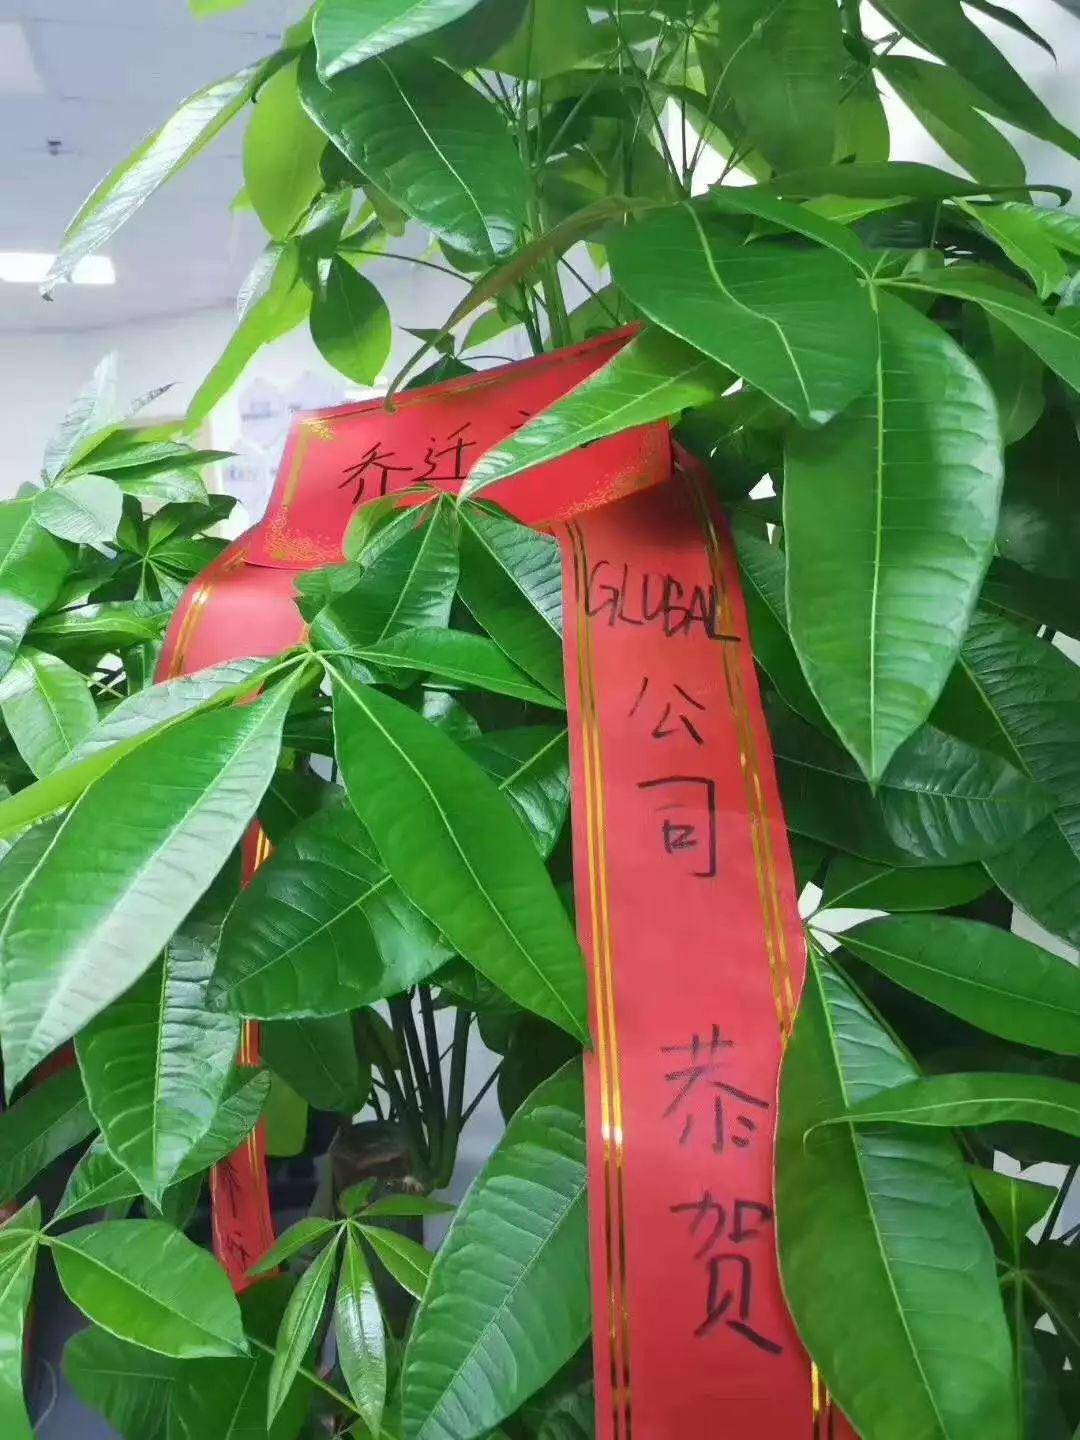 乔迁
GLUBAL
公司
恭贺